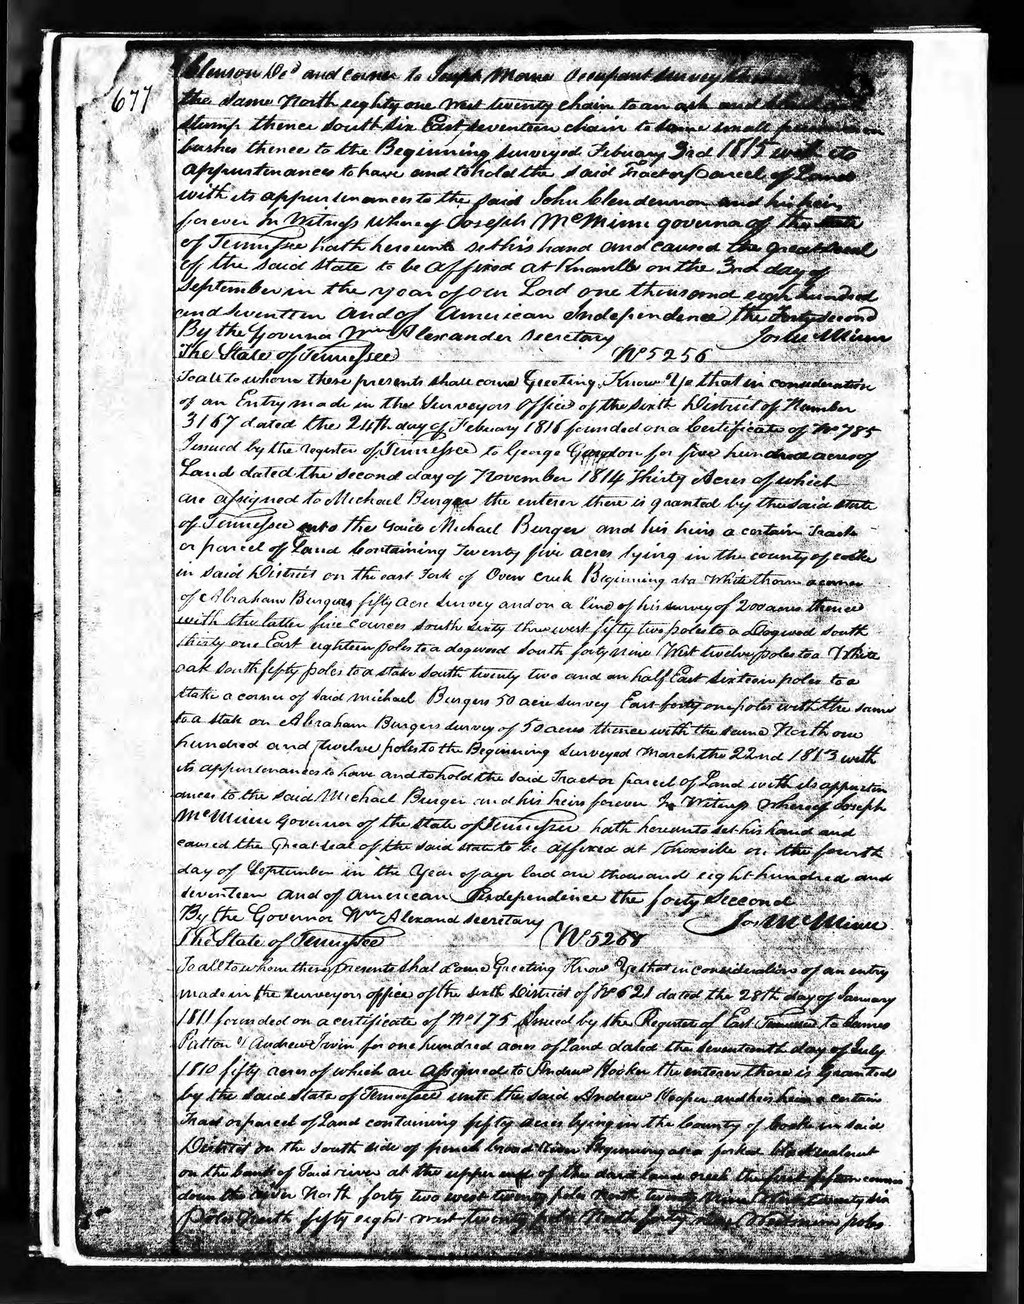 677
Clenson Dcd and corner to Joseph Morne Occupant survey thence
the same North eighty one West twenty chain to an ash and black
stump thence south six East seventeen chain to some small persimmon
bushes thence to the Beginning surveyed Febuary 3rd 1815 with its
appurtenances to have and to hold the said Tract or Parcel of Land
with its appurtenances to the said John Clendennon and his heirs
forever In Witness Whereof Joseph McMinn governor of the state
of Tennessee hath hereunto set his hand and caused the great seal
of the said state to be affixed at Knoxville on the 3rd day of
September in the year of our Lord one thousand eigh hundred
and seventeen and of American Independence the forty second
By the Governor Wm Alexander secretary Jos McMinn
The State of Tennessee No 5256
To all to whom these presents shall come Greeting, Know Ye that in consideration
of an Entry made in the Surveyors Office of the sixth District of Number
3167 dated the 24th day of Febuary 1816 founded on a Certificate of No 785
Issued by the register of Tennessee to George Gordon for five hundred acres of
Land dated the second day of November 1814 Thirty Acres of which
are assigned to Michael Burger the enterer there is granted by the said state
of Tennessee unto the said Michael Burger and his heirs a certain Tract
or parcel of Land Containing Twenty five acres lying in the county of Cocke
in said District on the east Fork of Oven Creek Beginning at a White thorn a corner
of Abraham Burgers fifty acre survey and on a line of his survey of 200 acres thence
with the latter five courses south sixty three west fifty two poles to a Dogwood south
thirty one East eighteen poles to a dogwood south forty nine West twelve poles to a White
oak south fifty poles to a stake south twenty two and an half East sixteen poles to a
stake a corner of said Michael Burgers 50 acre survey East forty one poles with the same
to a stake on Abraham Burgers survey of 50 acres thence with the same North one
hundred and twelve poles to the Beginning surveyed March the 22nd 1813 with
its appurtenances to have and to hold the said Tract or parcel of Land with its appurten
ances to the said Michael Burger and his heirs forever In Witness Whereof Joseph
McMinn Governor of the state of Tennessee hath hereunto set his hand and
caused the Great seal of the said state to be affixed at Knoxville on the fourth
day of September in the Year of our lord one thousand eight hundred and
seventeen and of american Independence the forty second
By the Governor Wm Alexand secretary Jos McMinn
The State of Tennessee No 5268
To all to whom these presents shal come Greeting Know Ye that in consideration of an entry
made in the surveyors office of the sixth District of No 621 dated the 28th day of January
1811 founded on a certificate of No 175 Issued by the Register of East Tennessee to James
Patton & Andrew Irvin for one hundred acres of Land dated the seventeenth day of July
1810 fifty acres of which are assigned to Andrew Hooker the enterer there is Granted
by the said State of Tennessee unto the said Andrew Hooper and his heirs a certain
Tract or parcel of Land containing fifty acres lying in the County of Cocke in said
District on the south side of french broad River Beginning at a forked black walnut
on the bank of said river at the upper end of the
down the river North forty two west twenty poles North twenty nine West twenty six
Poles North fifty eight West twenty poles North forty nine West poles